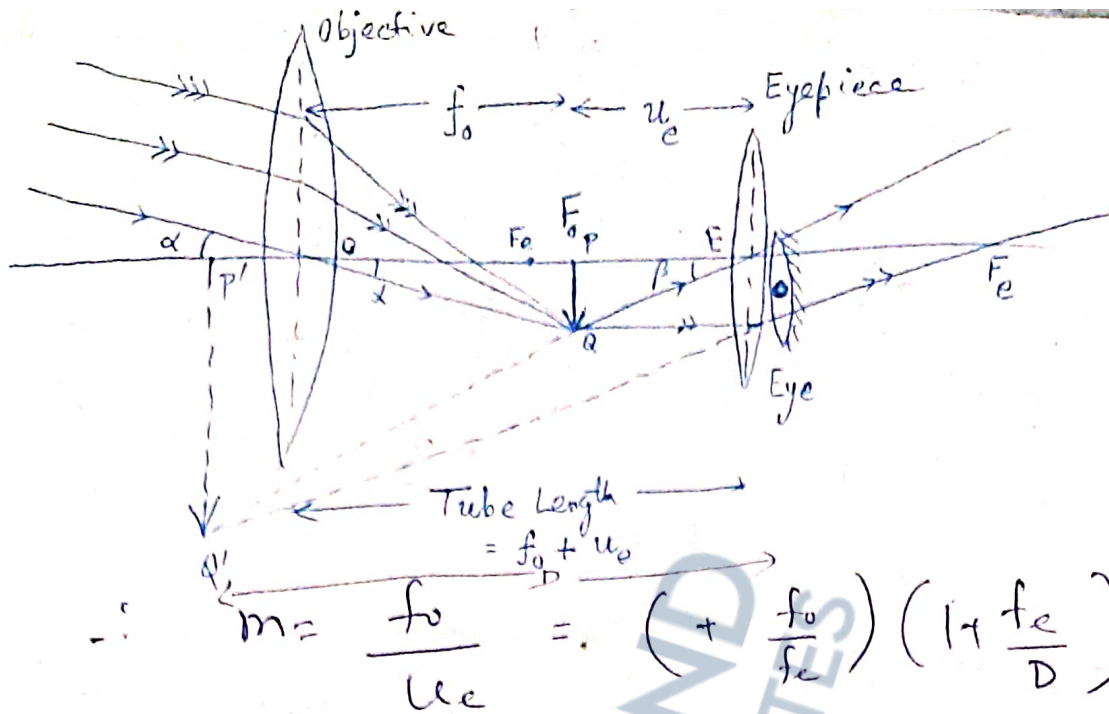 Objective
Eyepiece
f₀ u_e
α P' O α Fe F₀ P β E F_e
Q
Eye
Tube Length
= f₀ + u_e
Q' D
∴ m = f₀/u_e = (+ f₀/f_e) (1+ f_e/D)